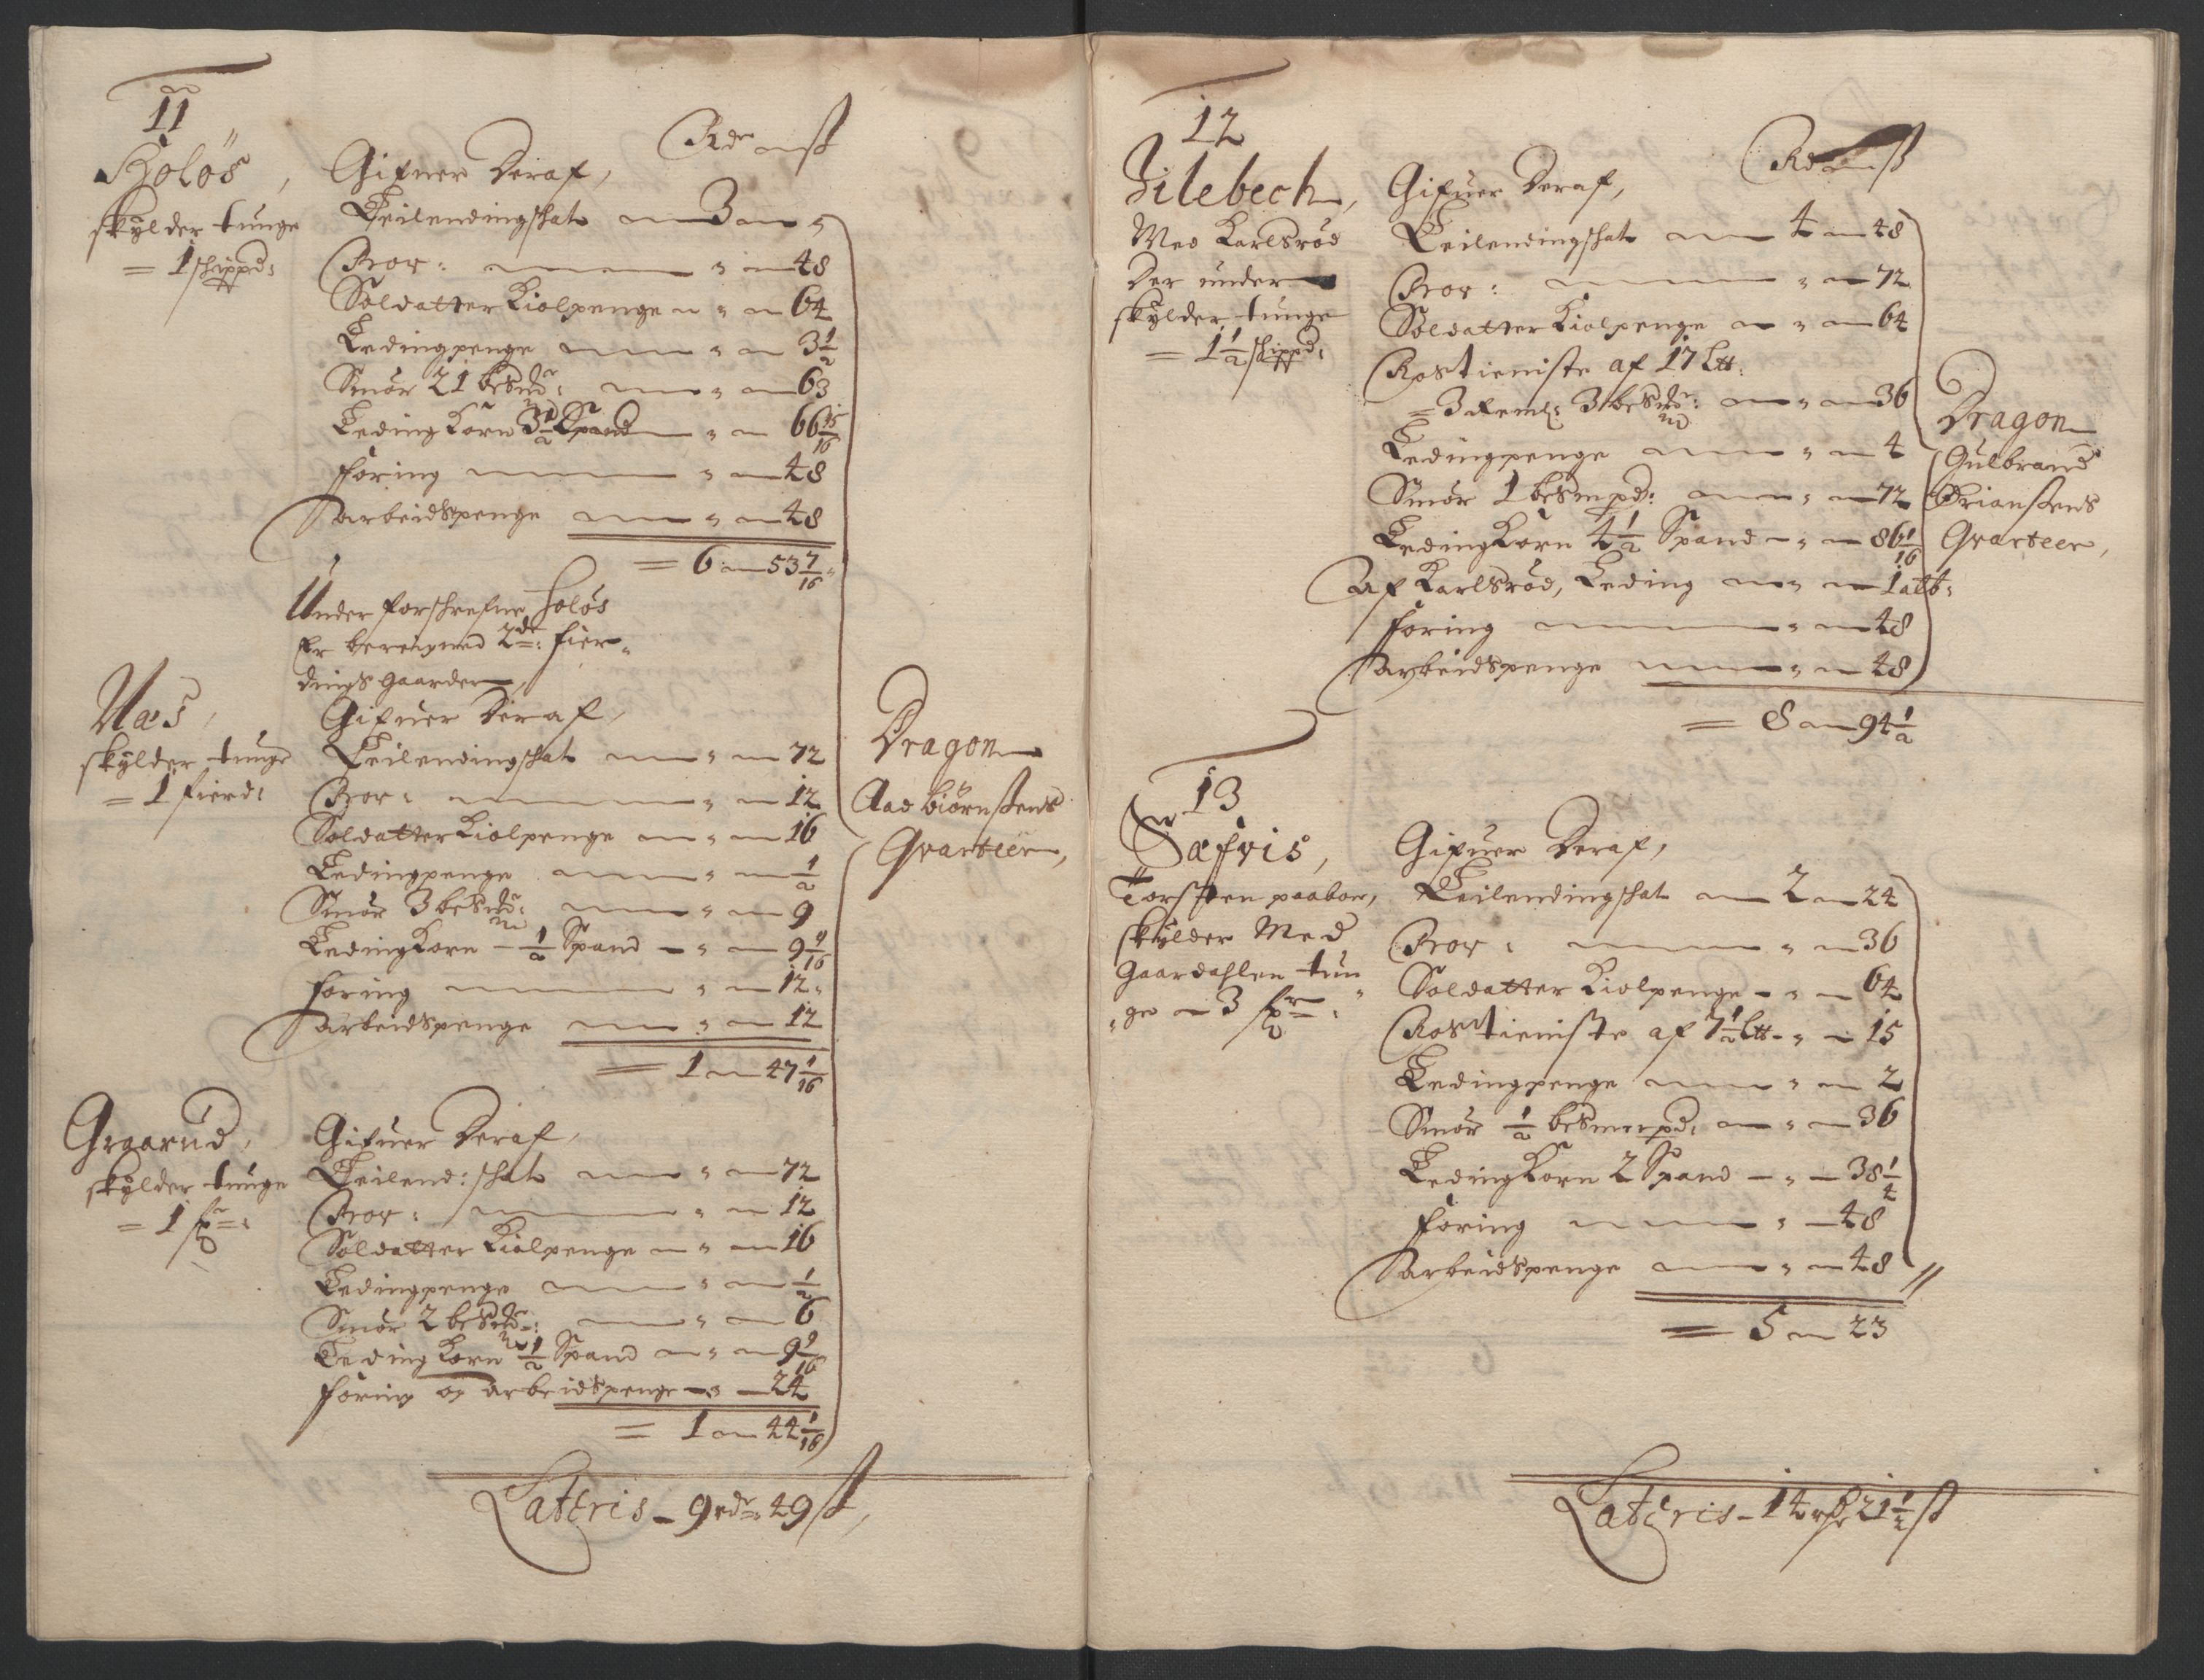 11
Holøs,
skylder tunge
= 1 schippd:
Rdr ß
Gifuer Deraf,
Leilendingschat 3 "
Roer: " 48
Soldatter Kiolpenge " 64
Ledingpenge " 3 1/2
Smør 21 besmdr: " 63
Leding Korn 3 1/2 Spand " 66 15/16
foring " 48
arbeidspenge " 48
= 6 53 7/16
Under forschrefne Holøs
Er beregned 2de: fier-
dings gaarder,
Næs,
skylder tunge
= 1 fierd:
Gifuer Deraf,
Leilendingschat " 72
Roer: " 12
Soldatter Kiolpenge " 16
Ledingpenge " 1/2
Smør 3 besmdr: " 9
Leding Korn 1/2 Spand " 9 9/16
foring " 12
arbeidspenge " 12
= 1 47 1/16
Dragon
Aad biørnsens
Qvarteer,
Graarud,
skylder tunge
= 1 fr:
Gifuer Deraf,
Leilend: schat " 72
Roer: " 12
Soldatter Kiolpenge " 16
Ledingpenge " 1/2
Smør 2 besmdr: " 6
Leding Korn 1/2 Spand " 9 9/16
foring og arbeidspenge " 24
= 1 44 1/16
Lateris - 9 rdr 49 ß,
12
Silebech,
Med Karlsrød
Der under
skylder tunge
= 1 1/2 schippd:
Rdr ß
Gifuer Deraf,
Leilendingschat 4 48
Roer: " 72
Soldatter Kiolpenge " 64
Rostieniste af 17 Ltt:
= 3 " 36
Ledingpenge " 4
Smør 1 besmpd: " 72
Leding Korn 4 1/2 Spand " 86 1/16
af Karlsrød, Leding " 1 alb:
foring " 48
arbeidspenge " 48
= 8 94 1/2
Dragon
Gulbrand
Qvarteer,
13
Sæfris,
Torsten paaboer,
skylder Med
Gaardahlen tun
"ge 3 fr:
Gifuer Deraf,
Leilendingschat 2 24
Roer: " 36
Soldatter Kiolpenge " 64
Rostieniste af 7 1/2 Ltt " 15
Ledingpenge " 2
Smør 1/2 besmerpd: " 36
Leding Korn 2 Spand " 38 1/4
foring " 48
arbeidspenge " 48
= 5 23
Lateris - 14 rdr 21 1/2 ß